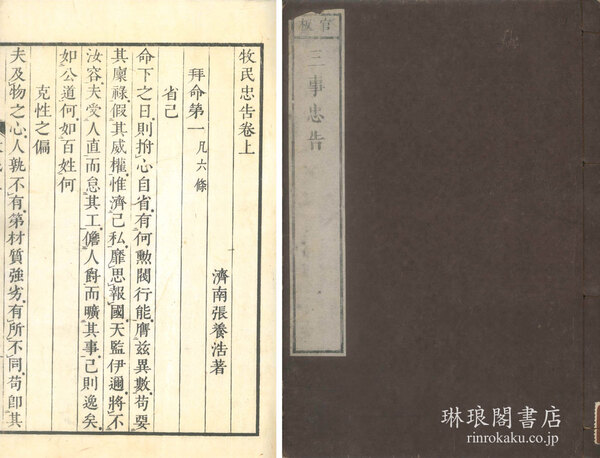 官板
三事忠告
牧民忠告卷上
濟南張養浩著
拜命第一 凡六條
省己
命下之日則拊心自省有何勲閥行能膺茲異數苟要
其廩祿假其威權惟濟己私靡思報國天監伊邇將不
汝容夫受人直而怠其工儋人爵而曠其事己則逸矣
如公道何如百姓何
克性之偏
夫及物之心人孰不有第材質強劣有所不同苟卽其
琳琅閣書店
rinrokaku.co.jp